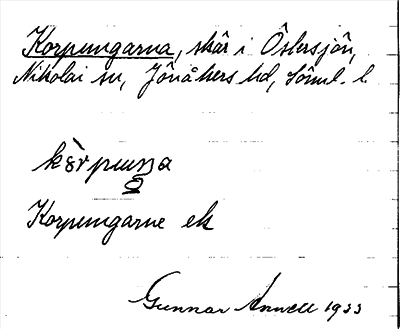 Korpungarna, skär i Östersjön,
Nikolai sn, Jönåkers hd, Söml. l.
kòrpuŋa
Korpungarne ek
Gunnar 1933